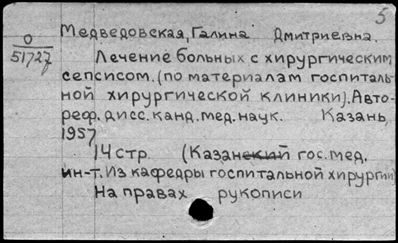 5
Медведовская, Галина Дмитриевна.
О
51727
Лечение больных с хирургическим
сепсисом. (по материалам госпиталь-
ной хирургической клиники). Авто-
реф. дисс. канд. мед. наук. Казань,
1957
14 стр (Казанский гос. мед.
ин-т. Из кафедры госпитальной хирургии)
На правах рукописи